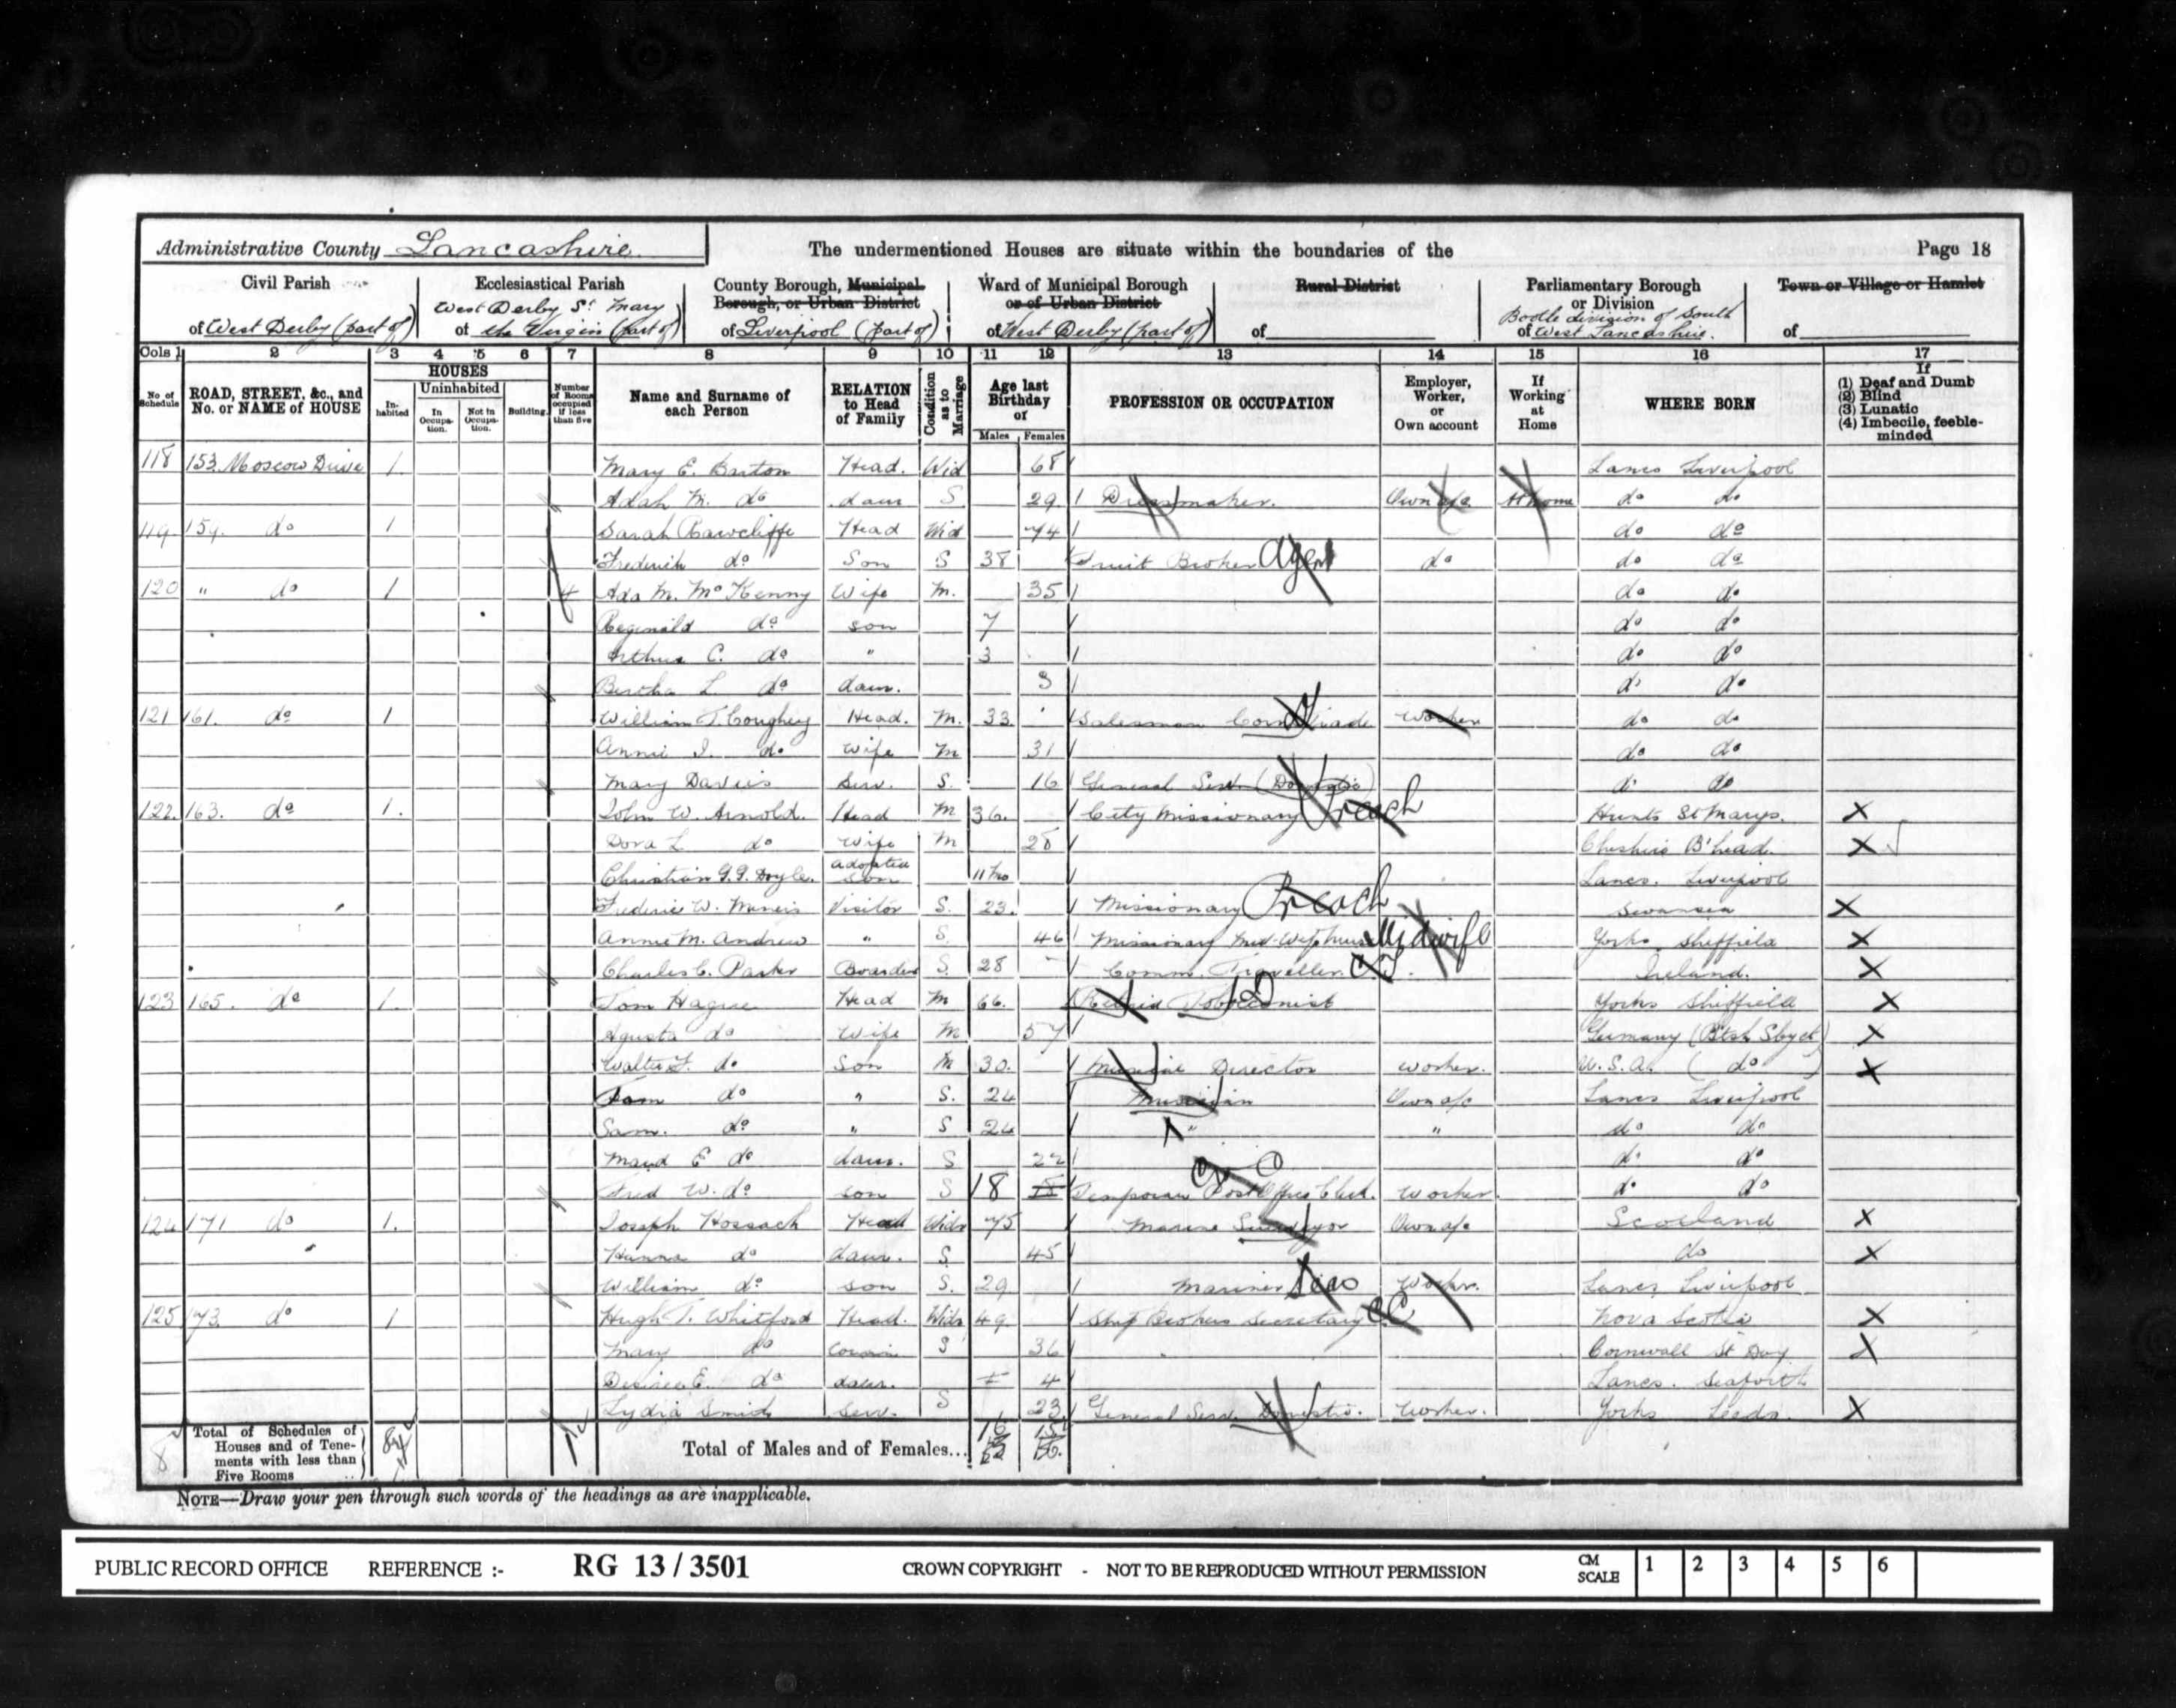 Administrative County Lancashire The undermentioned Houses are situate within the boundaries of the Page 18
Civil Parish Ecclesiastical Parish County Borough, Municipal Borough, or Urban District Ward of Municipal Borough or of Urban District Rural District Parliamentary Borough or Division Town or Village or Hamlet
of West Derby (part of) of West Derby St Mary the Virgin (part of) of Liverpool (part of) of West Derby (part of) of of Bootle division of South West Lancashire. of
Cols 1 2 3 4 5 6 7 8 9 10 11 12 13 14 15 16 17
No. of Schedule ROAD, STREET, &c., and No. or NAME of HOUSE HOUSES Inhabited Uninhabited In Occupation. Not in Occupation. Building. Number of Rooms occupied if less than five Name and Surname of each Person RELATION to Head of Family Condition as to Marriage Age last Birthday of Males Females PROFESSION OR OCCUPATION Employer, Worker, or Own account If Working at Home WHERE BORN If (1) Deaf and Dumb (2) Blind (3) Lunatic (4) Imbecile, feeble-minded
118 153 Moscow Drive 1 Mary E. Barton Head. Wid 68 Lancs Liverpool
Adah M. do daur S 29 Dressmaker. Own a/c At home do do
119 159. do 1 Sarah Rawcliffe Head Wid 74 do do
Frederick do Son S 38 Fruit Broker Agent do do do
120 " do 1 4 Ada M. McKenny Wife M. 35 do do
Reginald do son 7 do do
Arthur C. do " 3 do do
Bertha L. do daur. 3 do do
121 161. do 1 William T. Coughey Head. M. 33 Salesman Corn Trade Worker do do
Annie I. do Wife M 31 do do
Mary Davies Serv. S. 16 General Serv (Domestic) do do
122. 163. do 1. John W. Arnold. Head M 36. City Missionary Preach Hunts St Marys. X
Dora L do Wife M 28 Cheshire B'head. X
Christian G. G. Doyle. adopted son 11 mo Lancs. Liverpool
Frederic W. Visitor S. 23. Missionary Preach Swansea X
Annie M. Andrew " S. 46 Missionary Mid-wife Midwife Yorks. Sheffield X
Charles C. Parker Boarder S. 28 Comm. Traveller C.T. Ireland. X
123 165. do 1. Tom Hague Head M 66. Retired Tobacconist Yorks Sheffield X
Agusta do Wife M 57 Germany (Btsh Sbjct) X
Walter F. do Son M 30. Musical Director worker. U.S.A. (do) X
Tom do " S. 24 Musician Own a/c Lancs Liverpool
Sam. do " S 24 " " do do
Maud E do daur. S 22 do do
Fred W. do son S 18 18 Temporary Post Office Clerk. Worker. do do
124 171 do 1. Joseph Hossach Head Widr 75 Marine Surveyor Own a/c Scotland X
Hanna do daur. S. 45 do X
William do son S. 29 Mariner Worker. Lancs Liverpool
125 173. do 1 Hugh T. Whitford Head. Widr 49. Ship Brokers Secretary CC Nova Scotia X
Mary do Cousin S 36 Cornwall St Day X
Desiree E. do daur. 4 Lancs. Seaforth
Lydia Smith Serv. S 23 General Serv. Domestic. Worker. Yorks Leeds. X
8 Total of Schedules of Houses and of Tenements with less than Five Rooms 1 Total of Males and of Females... 16 15
NOTE—Draw your pen through such words of the headings as are inapplicable.
PUBLIC RECORD OFFICE REFERENCE :- RG 13 / 3501 CROWN COPYRIGHT - NOT TO BE REPRODUCED WITHOUT PERMISSION CM SCALE 1 2 3 4 5 6